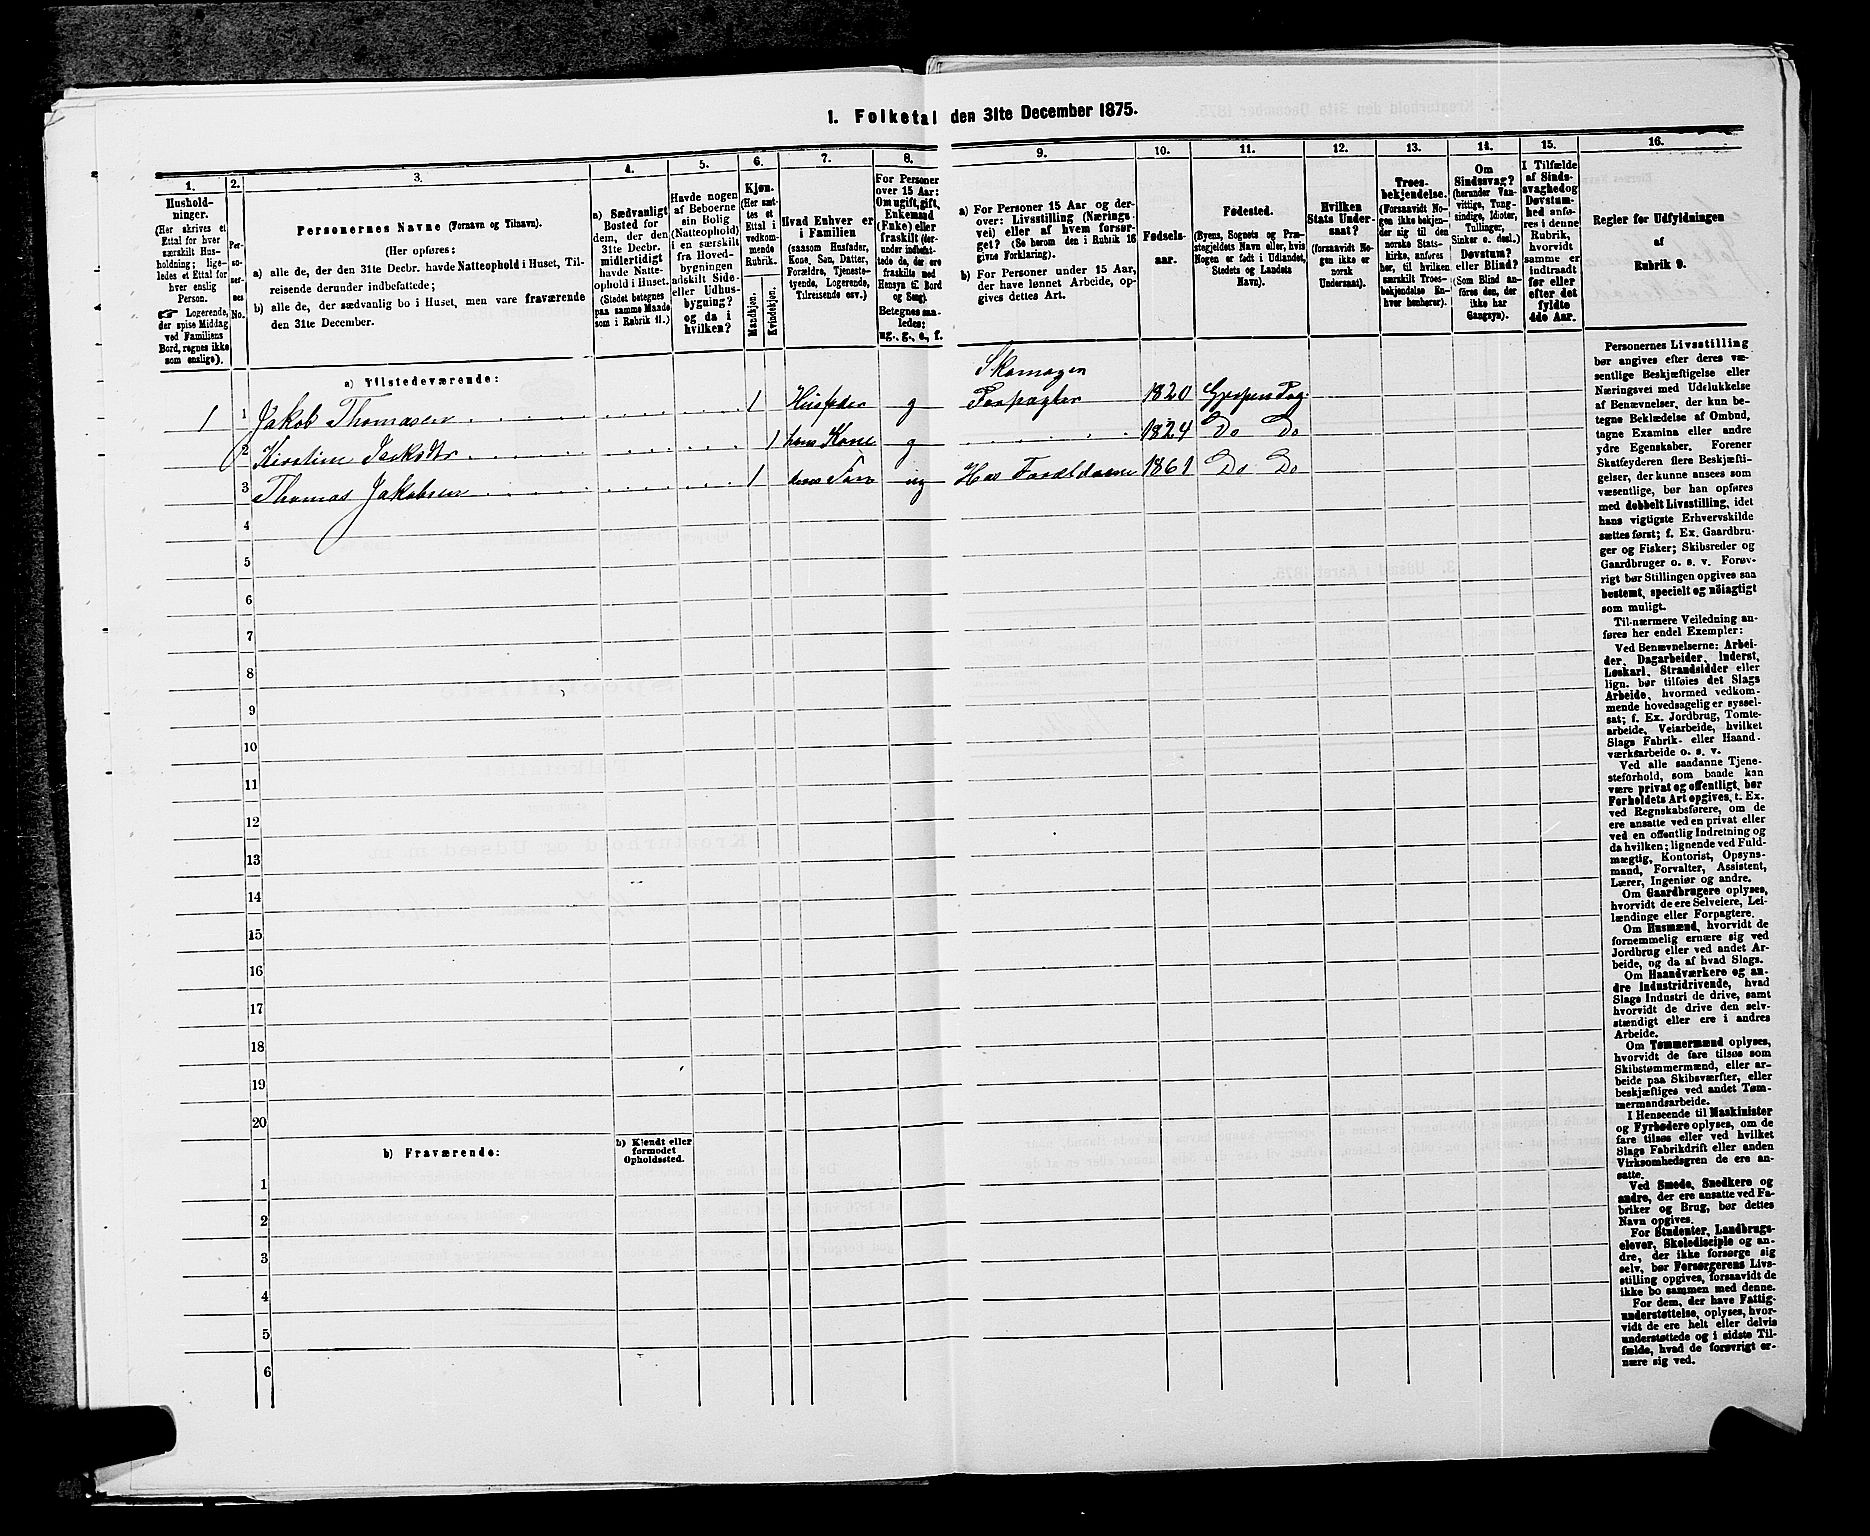 1. Folketal den 31te December 1875.
1.
Hushold-
ninger.
(Her skrives et
Ettal for hver
særskilt Hus-
holdning; lige-
ledes et Ettal for
hver enslig
Person.
☛ Logerende,
der spise Middag
ved Familiens
Bord, regnes ikke
som enslige).
2.
Per-
so-
ner-
nes
No.
3.
Personernes Navne (Fornavn og Tilnavn).
(Her opføres:
a) alle de, der den 31te Decbr. havde Natteophold i Huset, Til-
reisende derunder indbefattede;
b) alle de, der sædvanlig bo i Huset, men vare fraværende
den 31te December.
4.
a) Sædvanligt
Bosted for
dem, der den
31te Decbr.
midlertidigt
havde Natte-
ophold i Huset.
(Stedet betegnes
paa samme Maade
som i Rubrik 11.)
5.
Havde nogen
af Beboerne
sin Bolig
(Natteophold)
i en særskilt
fra Hoved-
bygningen
adskilt Side-
eller Udhus-
bygning?
og da i
hvilken?
6.
Kjøn.
(Her sæt-
tes et
Ettal i
vedkom-
mende
Rubrik.
Mandkjøn.
Kvindekjøn.
7.
Hvad Enhver er
i Familien
(saasom Husfader,
Kone, Søn, Datter,
Forældre, Tjeneste-
tyende, Logerende,
Tilreisende osv.)
8.
For Personer
over 15 Aar:
Om ugift, gift,
Enkemand
(Enke) eller
fraskilt (der-
under indbefat-
tede de, der ere
fraskilte med
Hensyn til Bord
og Seng).
Betegnes saa-
ledes:
ug., g., e., f.
9.
a) For Personer 15 Aar og der-
over: Livsstilling (Nærings-
vei) eller af hvem forsør-
get? (Se herom den i Rubrik 16
givne Forklaring).
b) For Personer under 15 Aar,
der have lønnet Arbeide, op-
gives dettes Art.
10.
Fødsels-
aar.
11.
Fødested.
(Byens, Sognets og Præ-
stegjeldets Navn eller, hvis
Nogen er født i Udlandet,
Stedets og Landets
Navn).
12.
Hvilken
Stats Under-
saat?
(forsaavidt No-
gen ikke er
norsk
Undersaat).
13.
Troes-
bekjendelse.
(Forsaavidt No-
gen ikke bekjen-
der sig til den
norske Stats-
kirke, anføres
her, til hvilken
særskilt Troes-
bekjendelse En-
hver henhører).
14.
Om
Sindssvag?
(herunder Van-
vittige, Tung-
sindige, Idioter,
Tullinger,
Sinker o. desl.)
Døvstum?
eller Blind?
(Som Blind an-
føres den, der
ikke har
Gangsyn).
15.
I Tilfælde
af Sinds-
svaghed og
Døvstum-
hed anfø-
res i denne
Rubrik,
hvorvidt
samme er
indtraadt
før eller
efter det
fyldte
4de Aar.
16.
Regler for Udfyldningen
af
Rubrik 9.
a) Tilstedeværende:
Skomager
1 1 Jakob Thomasen 1 Husfader g Forpagter 1820 Gjerpen Pdg
2 Kirstine Isaksdtr 1 hans Kone g 1824 Do Do
3 Thomas Jakobsen 1 deres Søn ug Hos Forældrene 1861 Do Do
4
5
6
7
8
9
10
11
12
13
14
15
16
17
18
19
20
b) Fraværende:
b) Kjendt eller
formodet
Opholdssted.
1
2
3
4
5
6
Personernes Livsstilling
bør angives efter deres væ-
sentlige Beskjæftigelse eller
Næringsvei med Udelukkelse
af Benævnelser, der kun be-
tegne Beklædelse af Ombud,
tagne Examina eller andre
ydre Egenskaber. Forener
Skatteyderen flere Beskjæfti-
gelser, der kunne ansees som
væsentlige, bør han opføres
med dobbelt Livsstilling, idet
hans vigtigste Erhvervskilde
sættes først; f. Ex. Gaardbru-
ger og Fisker; Skibsreder og
Gaardbruger o. s. v. Forøv-
rigt bør Stillingen opgives saa
bestemt, specielt og nøiagtigt
som muligt.
Til nærmere Veiledning an-
føres her endel Exempler:
Ved Benævnelserne: Arbei-
der, Dagarbeider, Inderst,
Løskarl, Strandsidder eller
lign. bør tilføies det Slags
Arbeide, hvormed vedkom-
mende hovedsagelig er syssel-
sat; f. Ex. Jordbrug, Tomte-
arbeide, Veiarbeide, hvilket
Slags Fabrik- eller Haand-
værksarbeide o. s. v.
Ved alle saadanne Tjene-
steforhold, som baade kan
være privat og offentligt, bør
Forholdets Art opgives, t. Ex.
ved Regnskabsførere, om de
ere ansatte ved en privat eller
ved en offentlig Indretning og
da hvilken; lignende ved Fuld-
mægtig, Kontorist, Opsyns-
mand, Forvalter, Assistent,
Lærer, Ingeniør og andre.
Om Gaardbrugere oplyses,
hvorvidt de ere Selveiere, Lei-
lændinge eller Forpagtere.
Om Husmænd, hvorvidt de
fornemmelig ernære sig ved
Jordbrug eller ved andet Ar-
beide, og da af hvad Slags.
Om Haandværkere og an-
dre Industridrivende, hvad
Slags Industri de drive, samt
hvorvidt de drive den selv-
stændigt eller ere i andres
Arbeide.
Om Tømmermænd oplyses,
hvorvidt de fare tilsøs som
Skibstømmermænd, eller ar-
beide paa Skibsværfter, eller
beskjæftiges ved andet Tøm-
mermandsarbeide.
I Henseende til Maskinister
og Fyrbødere oplyses, om de
fare tilsøs eller ved hvilket
Slags Fabrikdrift eller anden
Virksomhedsgren de ere an-
satte.
Ved Smede, Snedkere og
andre, der ere ansatte ved Fa-
briker og Brug, bør dettes
Navn opgives.
For Studenter, Landbrugs-
elever, Skoledisciple og an-
dre, der ikke forsørge sig
selv, bør Forsørgerens Livs-
stilling opgives, forsaavidt de
ikke bo sammen med denne.
For dem, der have Fattig-
understøttelse, oplyses, hvor-
vidt de ere helt eller delvis
understøttede og i sidste Til-
fælde, hvad de forøvrigt er-
nære sig ved.